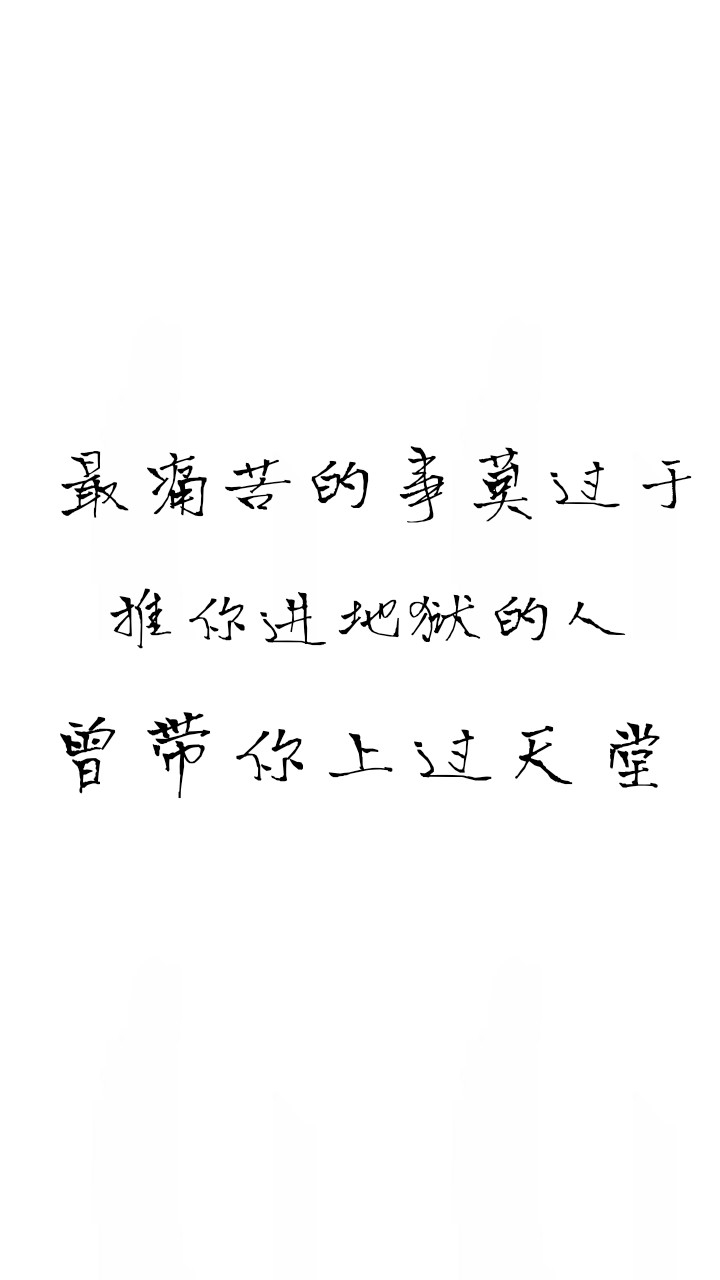 最痛苦的事莫过于
推你进地狱的人
曾带你上过天堂